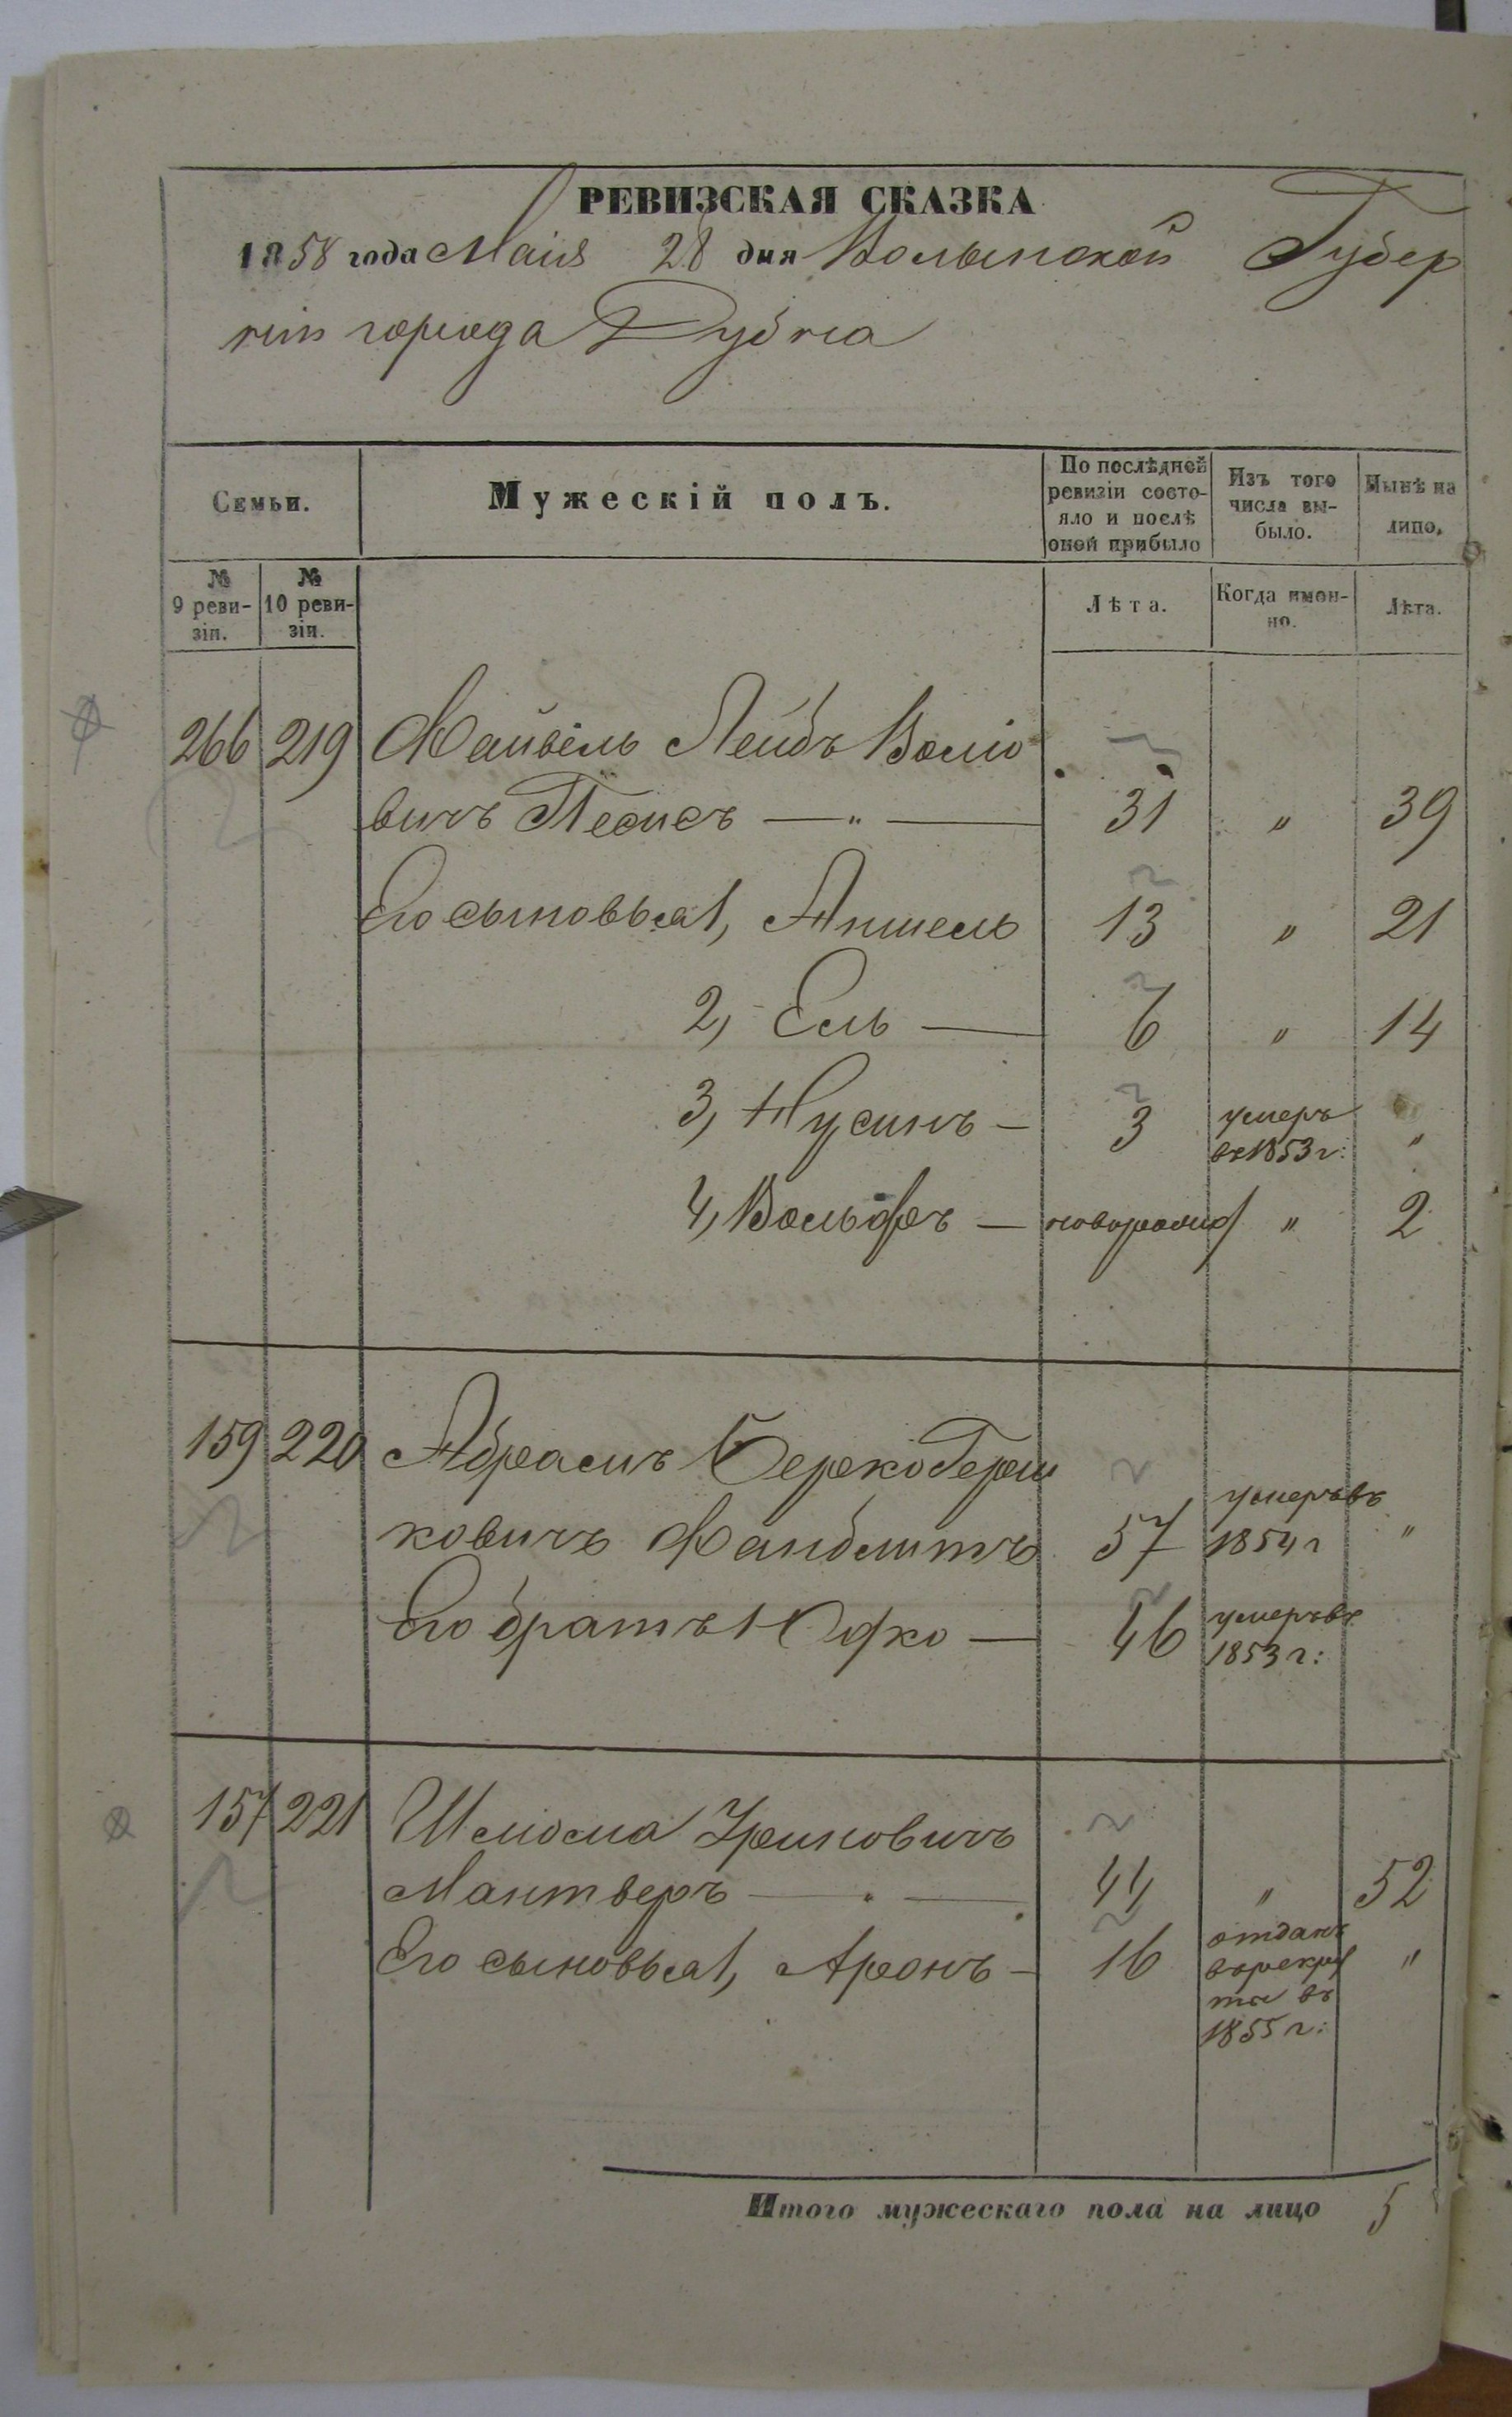 РЕВИЗСКАЯ СКАЗКА
1858 года Маія 28 дня Волынской Губер
ніи города Дубна
Семьи.
Мужескій полъ.
По послѣдней ревизіи состо-яло и послѣ оной прибыло
Изъ того числа вы-было.
Нынѣ на лицо.
№ 9 реви-зіи.
№ 10 реви-зіи.
Лѣта.
Когда имен-но.
Лѣта.
266 219 Файвель Лейбъ Волю
вичъ Песисъ — " — 31 " 39
Его сыновья 1, Аншель 13 " 21
2, Ель — 6 " 14
3, Нусинъ — 3 умеръ въ 1853 г: "
4, Вольфъ — новорожд " 2
159 220 Абрамъ Берко Герш
ковичъ Файблитъ 57 умеръ въ 1854 г "
Его братъ Юфко — 46 умеръ въ 1853 г:
157 221 Шлиома Уриновичъ
Мантверъ — " — 44 " 52
Его сыновья 1, Аронъ — 16 отданъ въ рекру ты въ 1855 г: "
Итого мужескаго пола на лицо 5